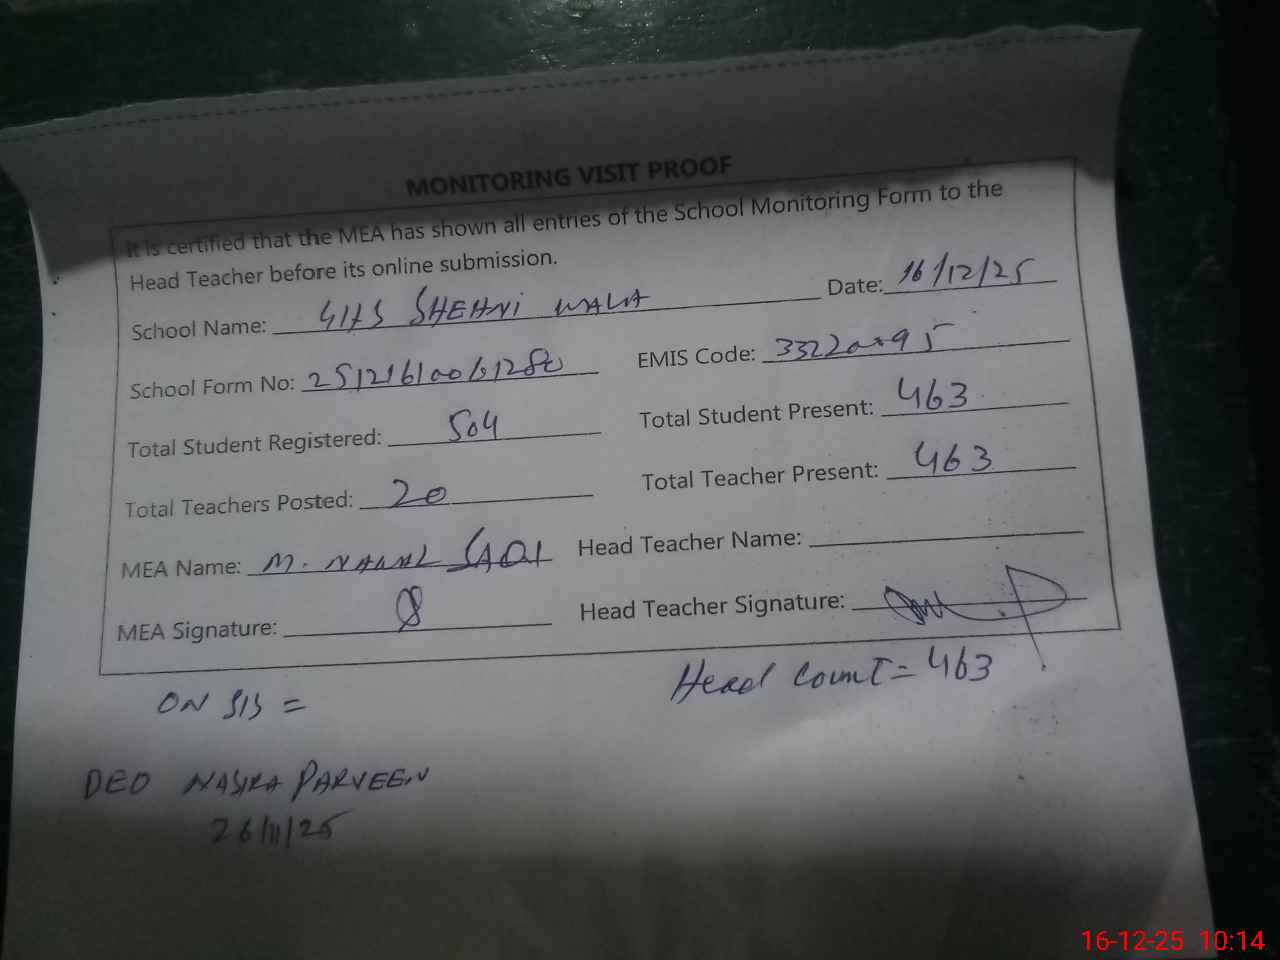 MONITORING VISIT PROOF
It is certified that the MEA has shown all entries of the School Monitoring Form to the
Head Teacher before its online submission.
School Name: GHS SHEHNI WALA Date: 16/12/25
School Form No: EMIS Code:
Total Student Registered: 504 Total Student Present: 463
Total Teachers Posted: 20 Total Teacher Present: 463
MEA Name: M. Head Teacher Name:
MEA Signature: Head Teacher Signature:
Head Count = 463
ON SIS =
DEO NASIRA PARVEEN
26/11/25
16-12-25 10:14